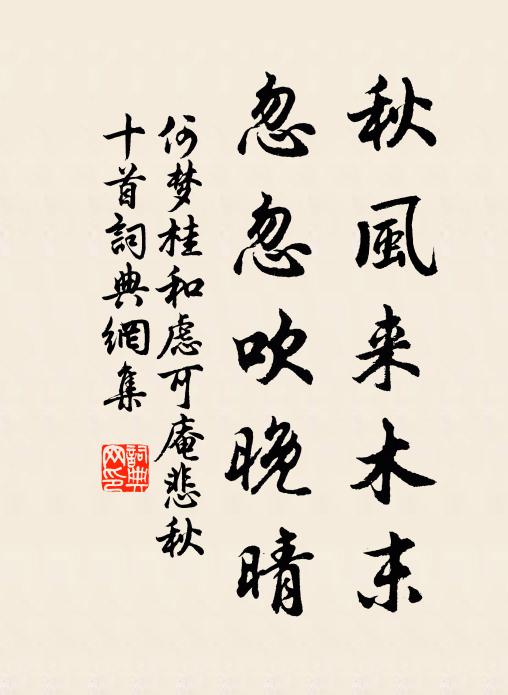 秋風来木末
忽忽吹晚晴
何梦桂和虑可庵悲秋
十首詞典網集
詞典网印